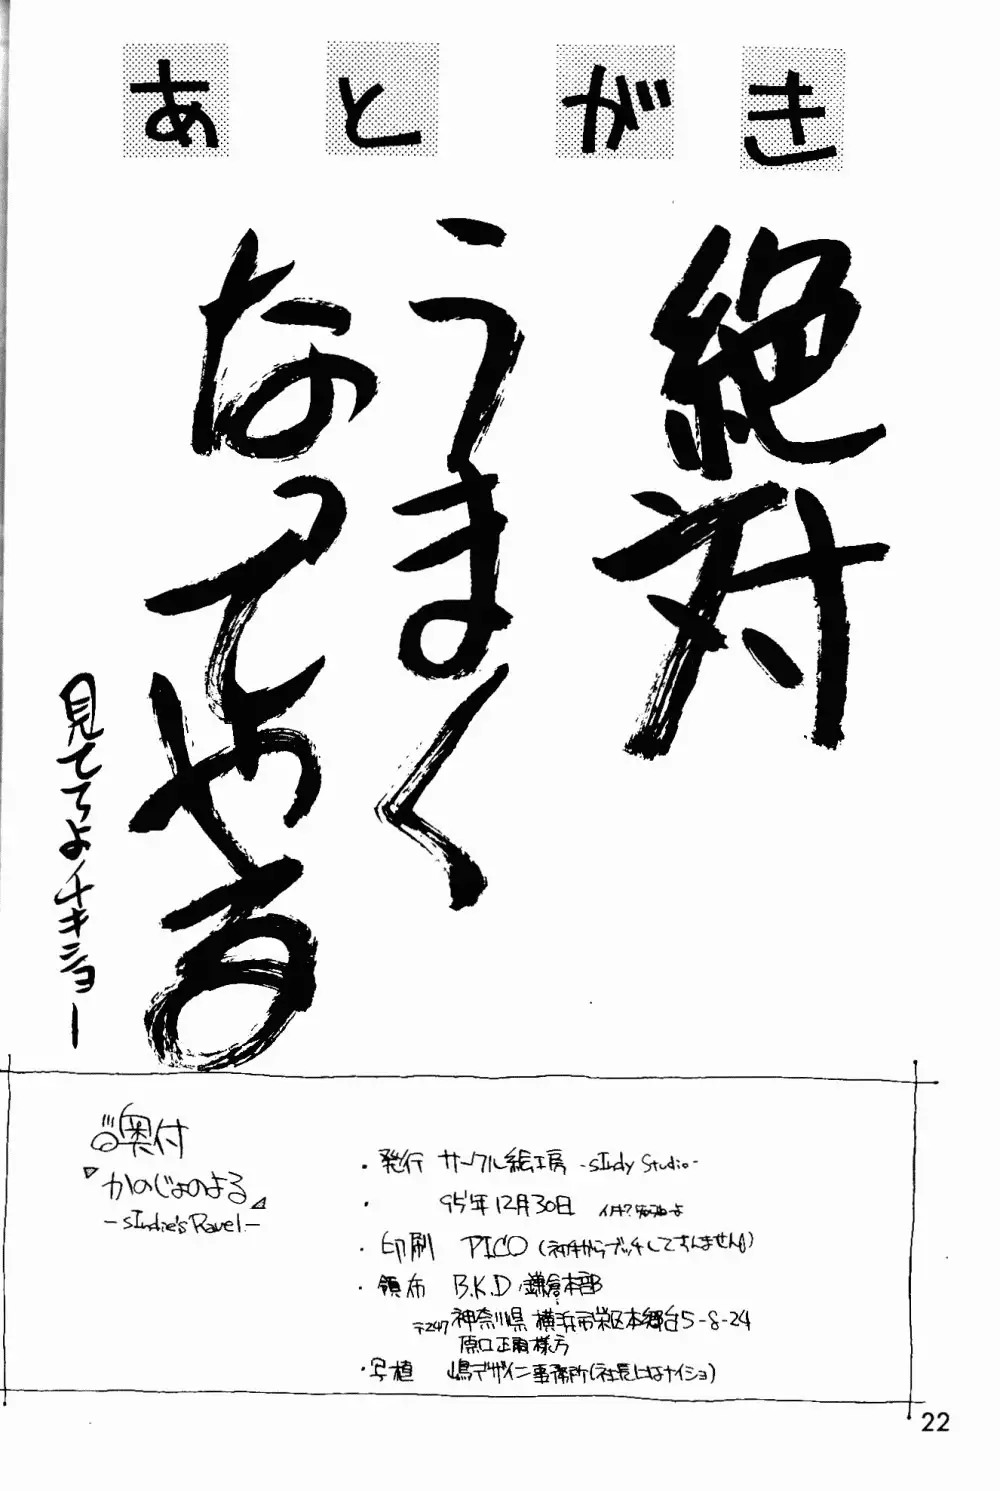 あとがき
絶対
うまく
なってやる
見てろよチキショー
奥付
『かのじょのよる』
-sIndie's Ravel-
・発行 サークル絵工房 -sIndy Studio-
・ 95年12月30日
・印刷 PICO (初手からブッチしてすんません)
・領布 B.K.D/鎌倉本部
〒247 神奈川県横浜市栄区本郷台5-8-24
原口正爾様方
・写植 嶋デザイン事務所(社長にはナイショ)
22